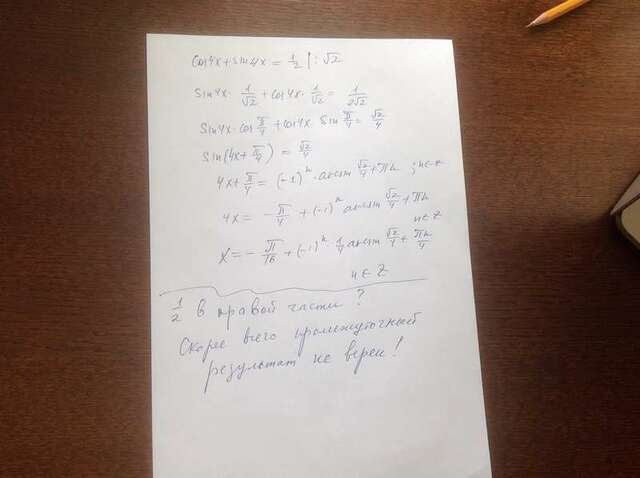 cos4x + sin4x = 1/2 | : √2
sin4x · 1/√2 + cos4x · 1/√2 = 1/(2√2)
sin4x · cos π/4 + cos4x · sin π/4 = √2/4
sin(4x + π/4) = √2/4
4x + π/4 = (-1)ⁿ · arcsin √2/4 + πn ; n∈z
4x = - π/4 + (-1)ⁿ arcsin √2/4 + πn
n∈Z
x = - π/16 + (-1)ⁿ · 1/4 arcsin √2/4 + πn/4
n∈Z
1/2 в правой части ?
Скорее всего промежуточный
результат не верен !